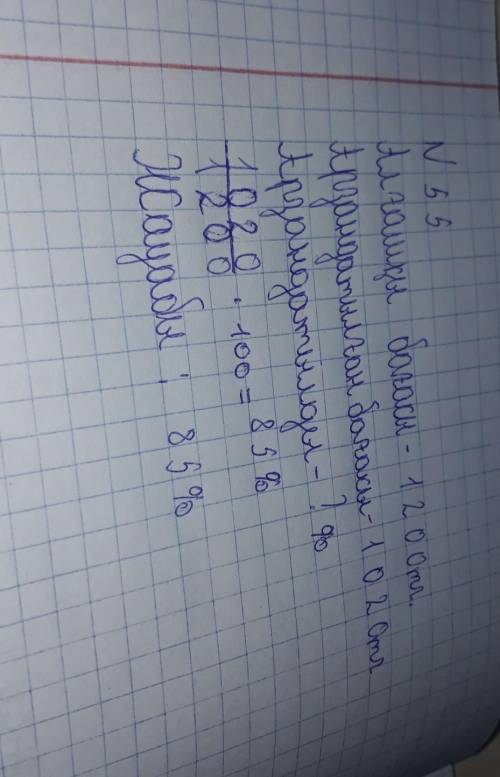 N 55
Алғашқы бағасы - 1200тг.
Арзандатылған бағасы - 1020тг
Арзандатылды - ? %
1020
1200 · 100 = 85%
Жауабы: 85%